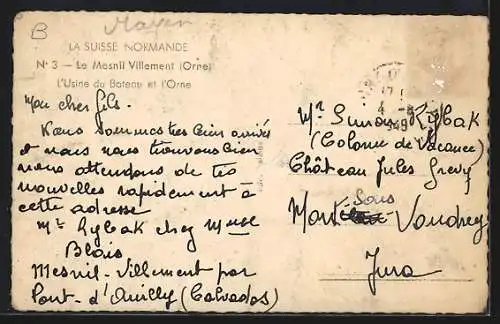 B
Mayen
LA SUISSE NORMANDE
N° 3 - Le Mesnil Villement (Orne)
L'Usine du Bateau et l'Orne
Mon cher fils.
Nous sommes tres bien arrivés
et nous nous trouvons bien
nous attendons de tes
nouvelles rapidement à
cette adresse
Mr Rybak chez Mme
Blais
Mesnil-Villement par
Pont-d'Ouilly (Calvados)
17
4 - 8
1949
Mr Simon Rybak
(Colonie de Vacance)
Château Jules Grevy
Mont-Sous Vaudrey
Jura